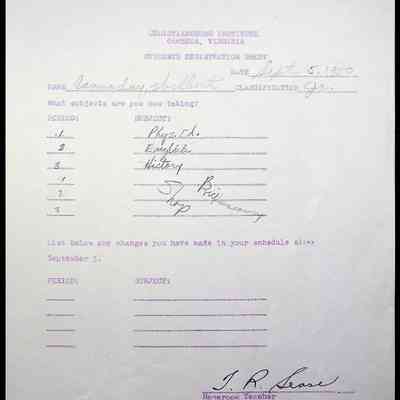 CHRISTIANSBURG INSTITUTE
CAMBRIA, VIRGINIA
STUDENTS REGISTRATION SHEET
DATE Sept. 5, 1950
NAME CLASSIFICATION Jr.
What subjects are you now taking?
PERIOD: SUBJECT:
1 Phys. Ed.
2 English
3 History
1 Shop Brickmasonry
2
3
List below any changes you have made in your schedule since
September 5.
PERIOD: SUBJECT:
T. R. Sease
Homeroom Teacher